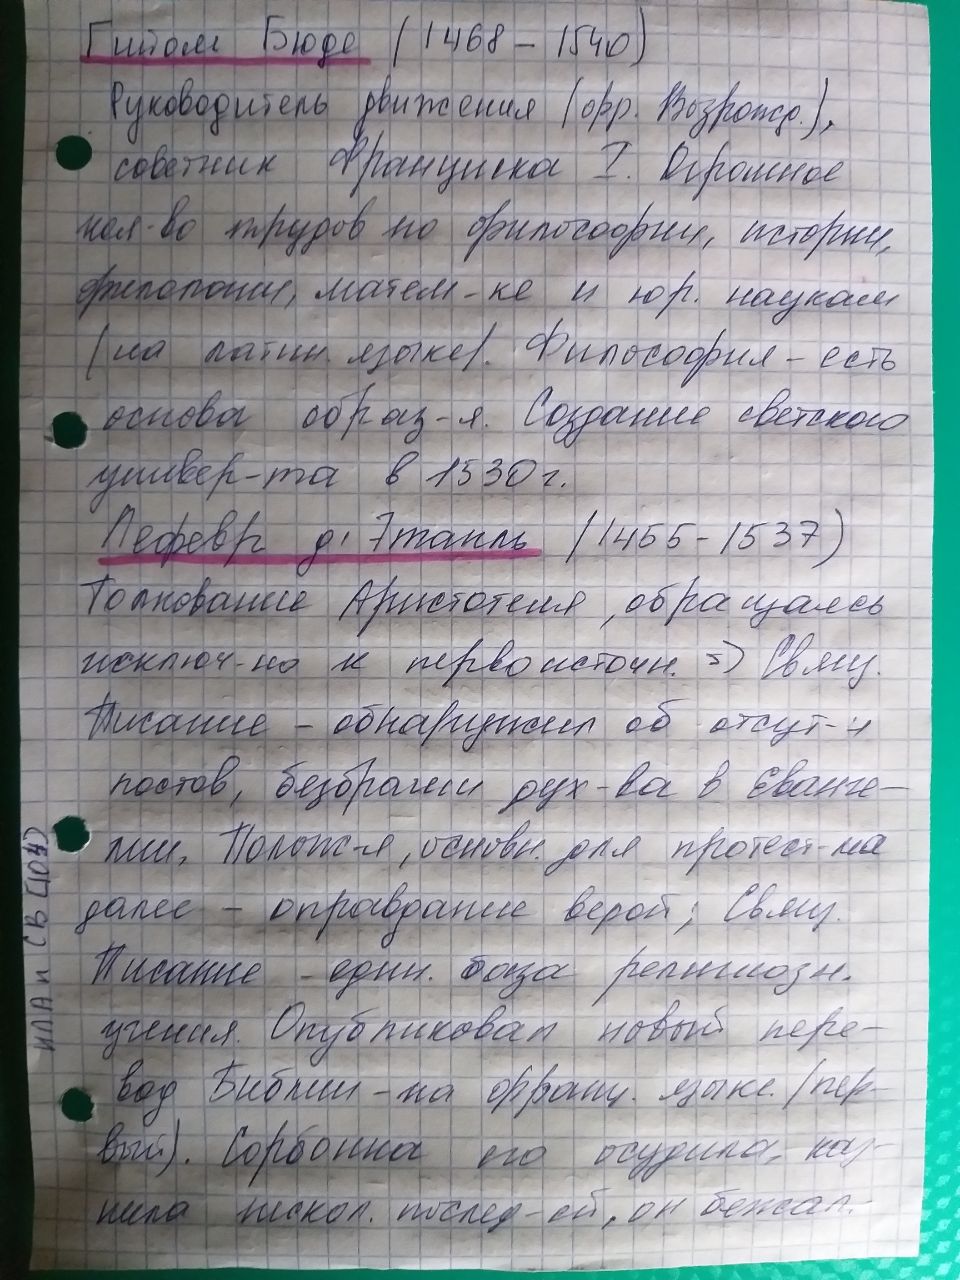 Гийом Бюде (1468 – 1540)
Руководитель движения (фр. Возрожд.),
советник Франциска I. Огромное
кол-во трудов по философии, истории,
филологии, матем-ке и юр. наукам
(на латин. языке). Философия – есть
основа образ-я. Создание светского
универ-та в 1530 г.
Лефевр д'Этапль (1455 – 1537)
Толкование Аристотеля, обращаясь
исключ-но к первоисточн. => Свящ.
Писание – обнаружил об отсут-и
постов, безбрачии дух-ва в Еванге-
лии. Полож-я, основн. для протест-ма
далее – оправдание верой; Свящ.
Писание – един. база религиозн.
учения. Опубликовал новый пере-
вод Библии – на франц. языке. (пер-
вый). Сорбонна его осудила, каз-
нила нескол. послед-ей, он бежал.
ИЛА и СВ (404)